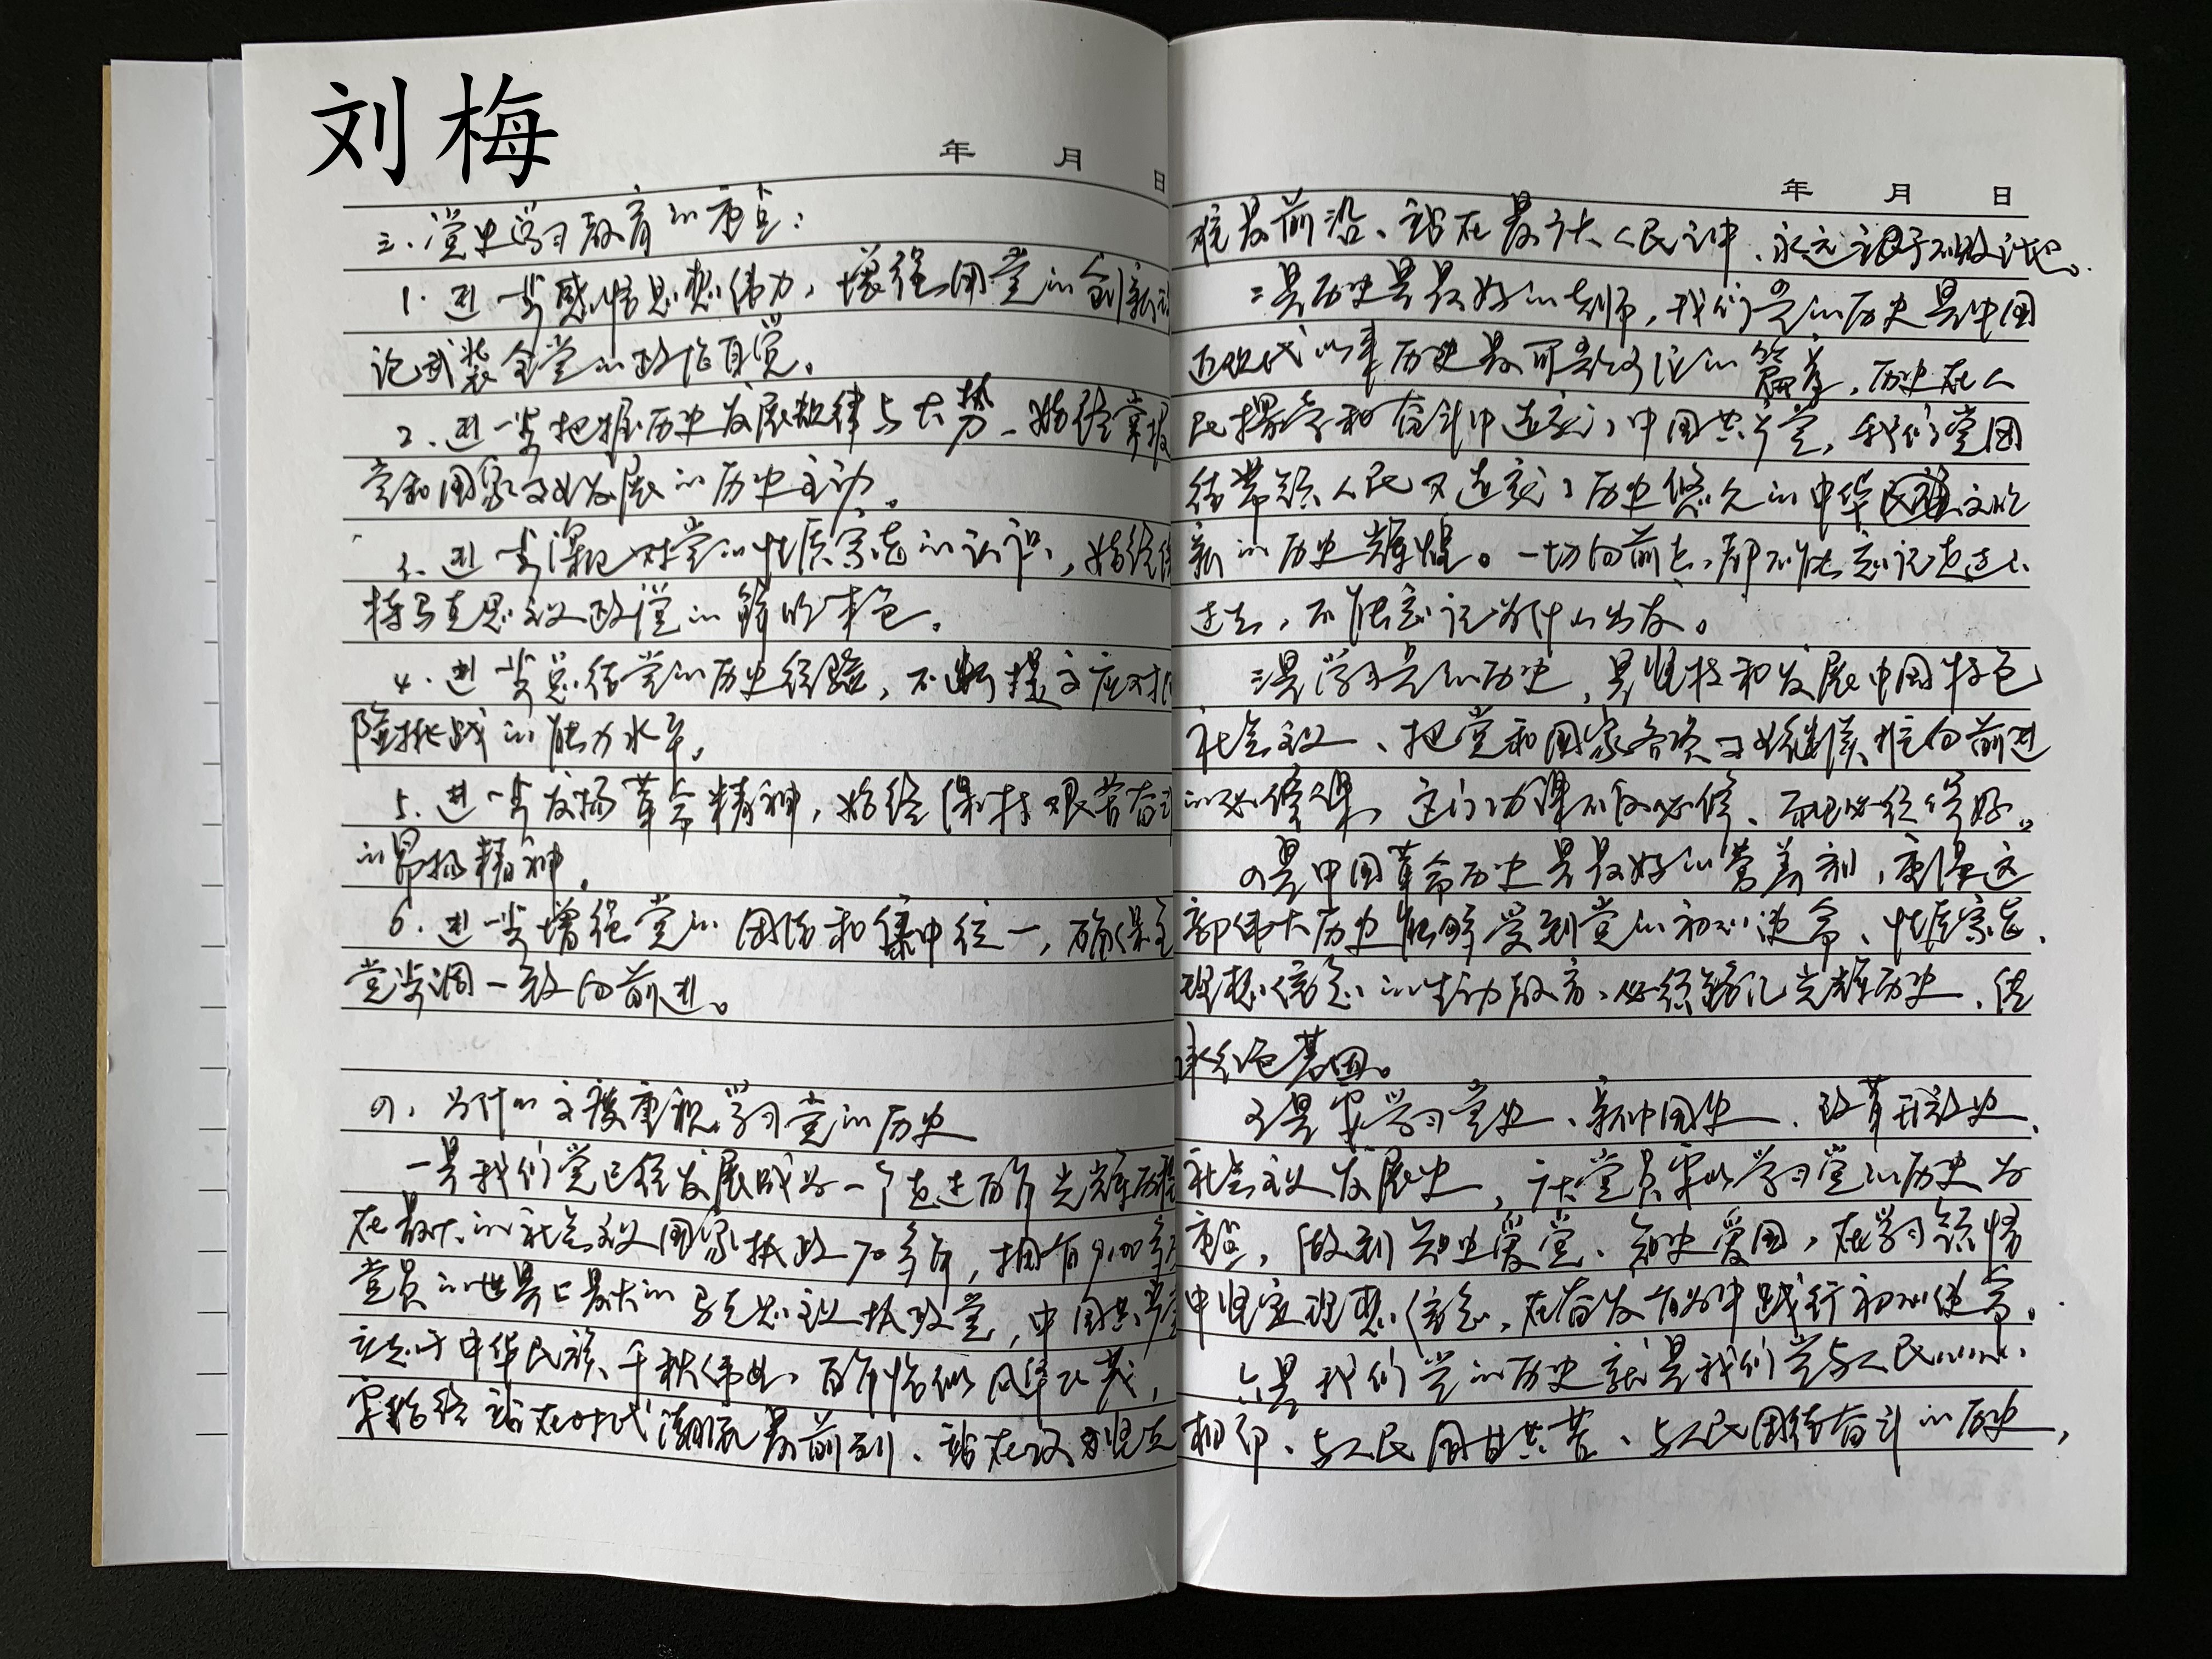 刘梅
年 月 日
三、党史学习教育的重点:
1. 进一步感悟思想伟力,增强用党的创新理
论武装全党的政治自觉。
2. 进一步把握历史发展规律与大势,始终掌握
党和国家事业发展的历史主动。
3. 进一步深化对党的性质宗旨的认识,始终保
持马克思主义政党的鲜明本色。
4. 进一步总结党的历史经验,不断提高应对风
险挑战的能力水平。
5. 进一步发扬革命精神,始终保持艰苦奋斗
的昂扬精神。
6. 进一步增强党的团结和集中统一,确保全
党步调一致向前进。
四、为什么高度重视学习党的历史
一是我们党已经发展成为一个走过百年光辉历程
在最大的社会主义国家执政70多年,拥有9100多万
党员的世界上最大的马克思主义执政党,中国共产党
立志于中华民族千秋伟业,百年恰似风华正茂,
要始终站在时代潮流最前列、站在攻坚克
年 月 日
难最前沿、站在最广大人民之中、永远立于不败之地。
二是历史是最好的老师,我们党的历史是中国
近现代以来历史最可歌可泣的篇章,历史在人
民探索和奋斗中造就了中国共产党,我们党团
结带领人民又造就了历史悠久的中华文明
新的历史辉煌。一切向前走,都不能忘记走过的
过去,不能忘记为什么出发。
三是学习党的历史,是坚持和发展中国特色
社会主义、把党和国家各项事业继续推向前进
的必修课,这门功课不仅必修、而且必须修好。
四是中国革命历史是最好的营养剂,重温这
部伟大历史能够受到党的初心使命、性质宗旨、
理想信念的生动教育、必须铭记光辉历史、传
承红色基因。
五是要学习党史、新中国史、改革开放史、
社会主义发展史,广大党员要以学习党的历史为
重点,做到知史爱党、知史爱国,在学习领悟
中坚定理想信念,在奋发有为中践行初心使命。
六是我们党的历史就是我们党与人民心心
相印、与人民同甘共苦、与人民团结奋斗的历史,